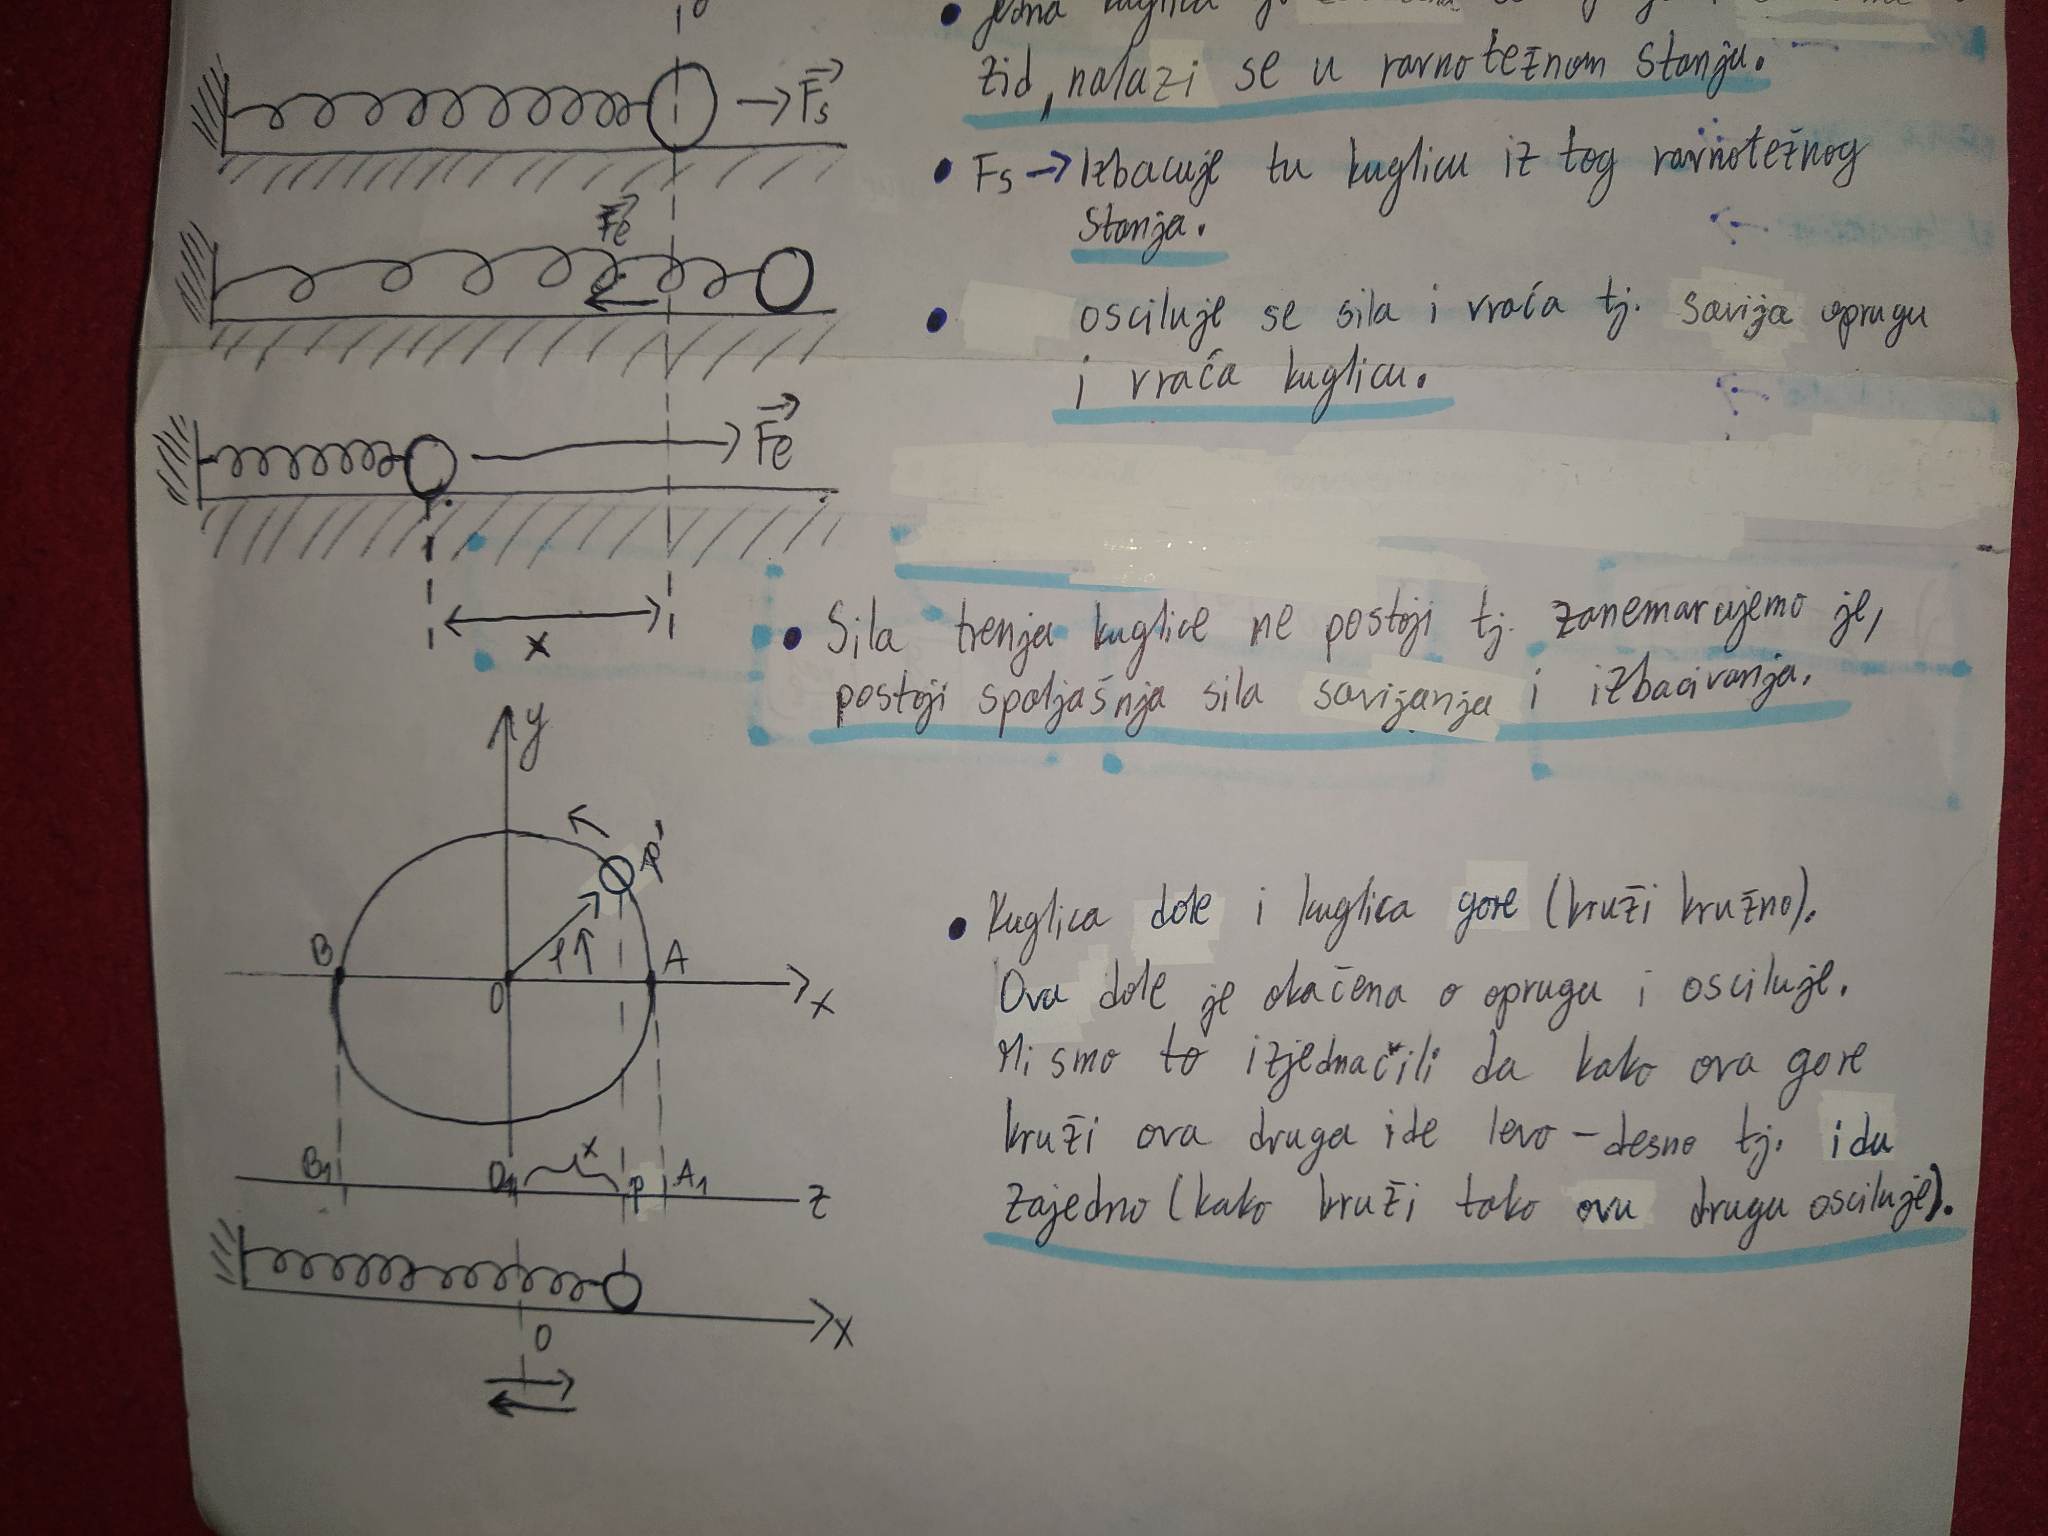 jedna kuglica
zid, nalazi se u ravnotežnom stanju.
Fs → Izbacuje tu kuglicu iz tog ravnotežnog
stanja.
osciluje se sila i vraća tj. savija oprugu
i vraća kuglicu.
Sila trenja kuglice ne postoji tj. zanemarujemo je,
postoji spoljašnja sila savijanja i izbacivanja.
Kuglica dole i kuglica gore (kruži kružno).
Ova dole je okačena o oprugu i osciluje.
Mi smo to izjednačili da kako ova gore
kruži ova druga ide levo - desno tj. idu
zajedno (kako kruži tako ova druga osciluje).
Fs
Fe
Fe
x
y
P'
B
A
φ
O
x
x
B1
O1
P
A1
z
O
x